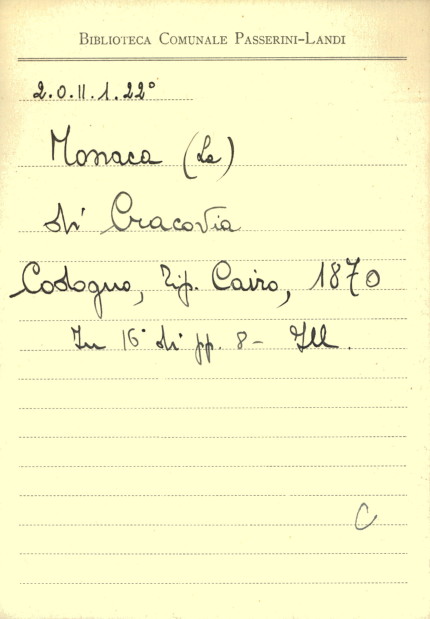 BIBLIOTECA COMUNALE PASSERINI-LANDI
2.O.II.1.22°
Monaca (La)
di Cracovia
Codogno, Tip. Cairo, 1870
In 16° di pp. 8 - Ill.
C